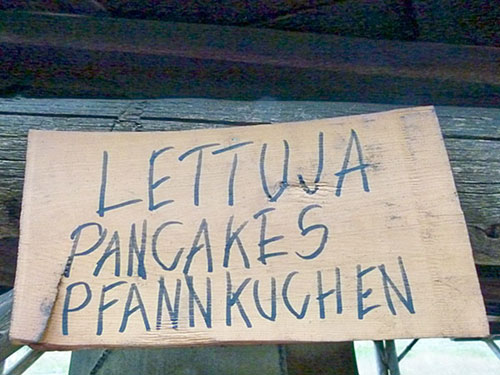 LETTUJA
PANCAKES
PFANNKUCHEN